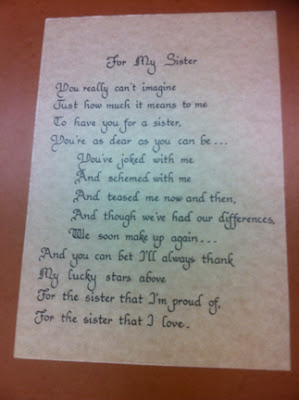 For My Sister
You really can't imagine
Just how much it means to me
To have you for a sister,
You're as dear as you can be...
You've joked with me
And schemed with me
And teased me now and then,
And though we've had our differences,
We soon make up again...
And you can bet I'll always thank
My lucky stars above
For the sister that I'm proud of,
For the sister that I love.